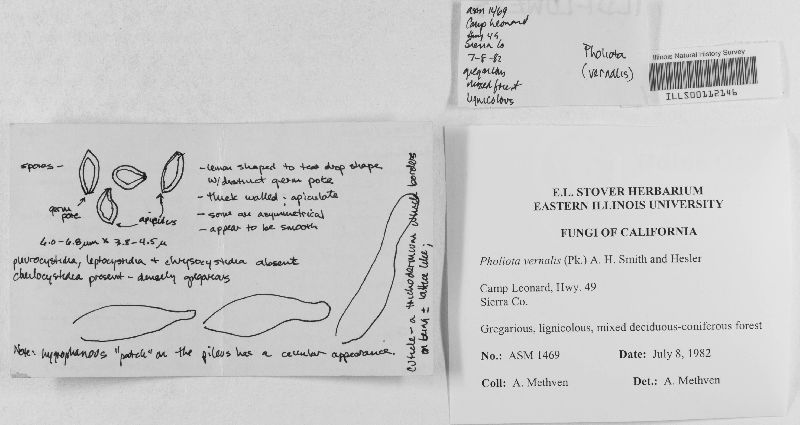 asm 1469
Camp Leonard
Hwy 49,
Sierra Co
7-8-82
gregarious
mixed forest
lignicolous
Pholiota
(vernalis)
Illinois Natural History Survey
ILLS00112146
spores -
germ
pore
apiculus
- lemon shaped to tear drop shape
w/distinct germ pore
- thick walled; apiculate
- some are asymmetrical
- appear to be smooth
6.0-6.8µm x 3.8-4.5µ
pleurocystidia, leptocystidia + chrysocystidia absent
cheilocystidia present - densely gregarious
Note: hygrophanous "patch" on the pileus has a cellular appearance.
Cuticle - a trichodermium which borders
on being ± lattice like;
E.L. STOVER HERBARIUM
EASTERN ILLINOIS UNIVERSITY
FUNGI OF CALIFORNIA
Pholiota vernalis (Pk.) A. H. Smith and Hesler
Camp Leonard, Hwy. 49
Sierra Co.
Gregarious, lignicolous, mixed deciduous-coniferous forest
No.: ASM 1469 Date: July 8, 1982
Coll: A. Methven Det.: A. Methven